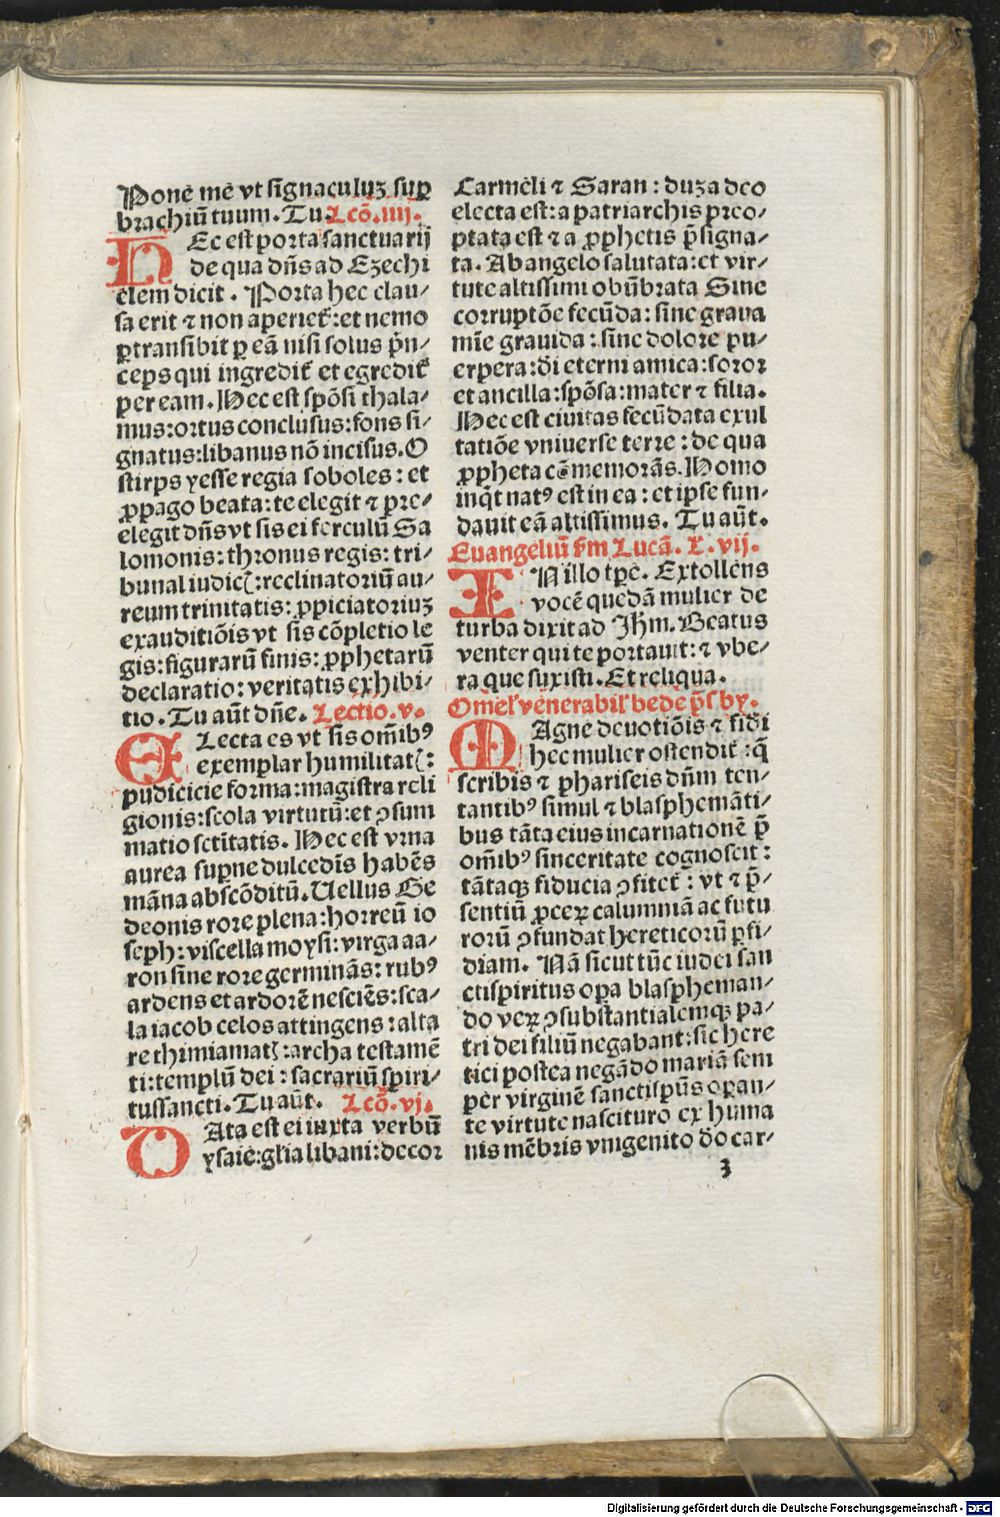 Ponē mē vt signaculuꝫ suꝑ
brachiū tuum. Tu. Lcō. iiij.
HEc est porta sanctuarij
de qua dn̄s ad Ezechi
elem dicit. Porta hec clau⸗
sa erit ⁊ non aperiet᷑: et nemo
ꝑtransibit ꝑ eā nisi solus pn̄⸗
ceps qui ingredit᷑ et egredit᷑
per eam. Hec est spōsi thala⸗
mus: ortus conclusus: fons si⸗
gnatus: libanus nō incisus. O
stirps yesse regia soboles: et
ꝓpago beata: te elegit ⁊ pre⸗
elegit dn̄s vt sis ei ferculū Sa
lomonis: thronus regis: tri⸗
bunal iudicꝭ: reclinatoriū au⸗
reum trinitatis: ꝓpiciatoriuꝫ
exauditiōis vt sis cōpletio le
gis: figurarū finis: ꝓphetarū
declaratio: veritatis exhibi⸗
tio. Tu aūt dn̄e. Lectio. v.
ELecta es vt sis om̄ibꝰ
exemplar humilitatꝭ:
pudicicie forma: magistra reli
gionis: scola virtutū: et ꝯsum
matio sctītatis. Hec est vrna
aurea suꝑne dulcedīs habēs
māna abscōditū. Uellus Ge
deonis rore plena: horreū io
seph: viscella moysi: virga aa⸗
ron sine rore germinās: rubꝰ
ardens et ardorē nesciēs: sca⸗
la iacob celos attingens: alta
re thimiamatꝭ: archa testamē
ti: templū dei: sacrariū spiri⸗
tussancti. Tu aūt. Lcō. vj.
DAta est ei iuxta verbū
ysaie: gl̄ia libani: decor
Carmēli ⁊ Saran: duꝫa deo
electa est: a patriarchis preo⸗
ptata est ⁊ a ꝓphetis p̄signa⸗
ta. Ab angelo salutata: et vir⸗
tute altissimi obūbrata Sine
corruptōe fecūda: sine graua
mīe grauida: sine dolore pu⸗
erpera: di eterni amica: soror
et ancilla: spōsa: mater ⁊ filia.
Hec est ciuitas fecūdata exul
tatiōe vniuerse terre: de qua
ꝓpheta cōmemorās. Homo
inq̄t natꝰ est in ea: et ipse fun⸗
dauit eā altissimus. Tu aūt.
Euangeliū ẜm Lucā. x. vij.
IN illo tꝑe. Extollens
vocē quedā mulier de
turba dixit ad Jh̄m. Beatus
venter qui te portauit: ⁊ vbe⸗
ra que suxisti. Et reliqua.
Omel᷑ venerabil᷑ bede p̄sbr̄.
MAgne deuotiōis ⁊ fidi
hec mulier ostendit᷑: q̄
scribis ⁊ phariseis dn̄m ten⸗
tantibꝰ simul ⁊ blasphemāti⸗
bus tāta eius incarnationē p̄
om̄ibꝰ sinceritate cognoscit:
tātaqꝫ fiducia ꝯfitet᷑: vt ⁊ p̄⸗
sentiū ꝓceꝝ calumniā ac futu
rorū ꝯfundat hereticorū ꝑfi⸗
diam. Nā sicut tūc iudei san
ctispiritus oꝑa blaspheman⸗
do veꝝ ꝯsubstantialemqꝫ pa⸗
tri dei filiū negabant: sic here
tici postea negādo mariā sem
per virginē sanctisp̄us oꝑan⸗
te virtute nascituro ex huma
nis mēbris vnigenito do car⸗
3
Digitalisierung gefördert durch die Deutsche Forschungsgemeinschaft - DFG